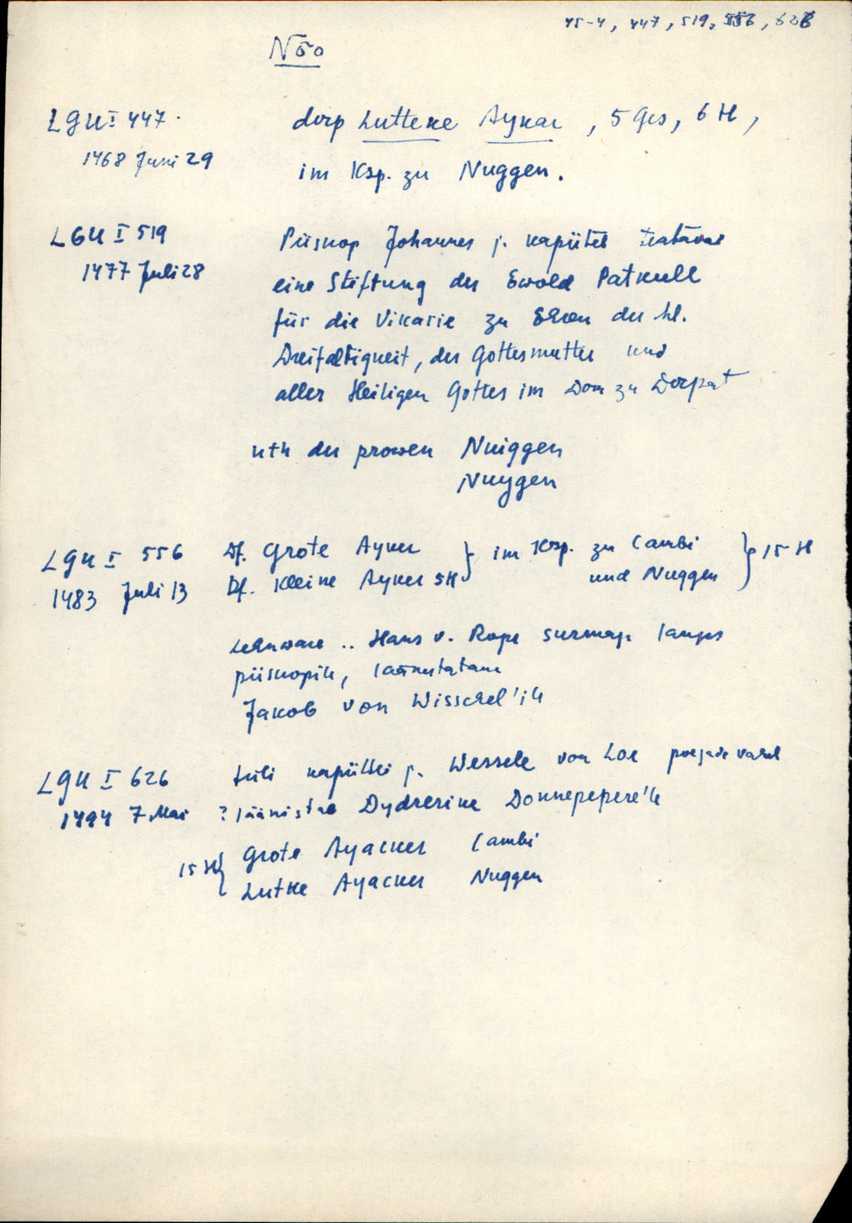 45-4, 447, 519, 556, 626
Nõo
LGU I 447. dorp Lutteke Aykar, 5 Ges, 6 H,
1468 Juni 29 im Ksp. zu Nuggen.
LGU I 519 Piiskop Johannes j. kapiitel teatavad
1477 Juli 28 eine Stiftung des Ewold Patkull
für die Vikarie zu Ehren der hl.
Dreifaltigkeit, der Gottesmutter und
aller Heiligen Gottes im Dom zu Dorpat
uth der prowen Nuiggen
Nuygen
LGU I 556 Df. Grote Ayker } im Ksp. zu Cambi } 15 H
1483 Juli 13 Df. Kleine Ayker 5H und Nuggen
Lehnware .. Hans v. Rope surmaga langes
piiskopile, läänistatame
Jakob von Wisschel'ile
LGU I 626 tüli kapiitli j. Wessele von Loe poegade vahel
1494 7 Mai ? läänistas Dydrerine Donnepepere'le
15 H { Grote Ayacker Cambi
Lutke Ayacker Nuggen